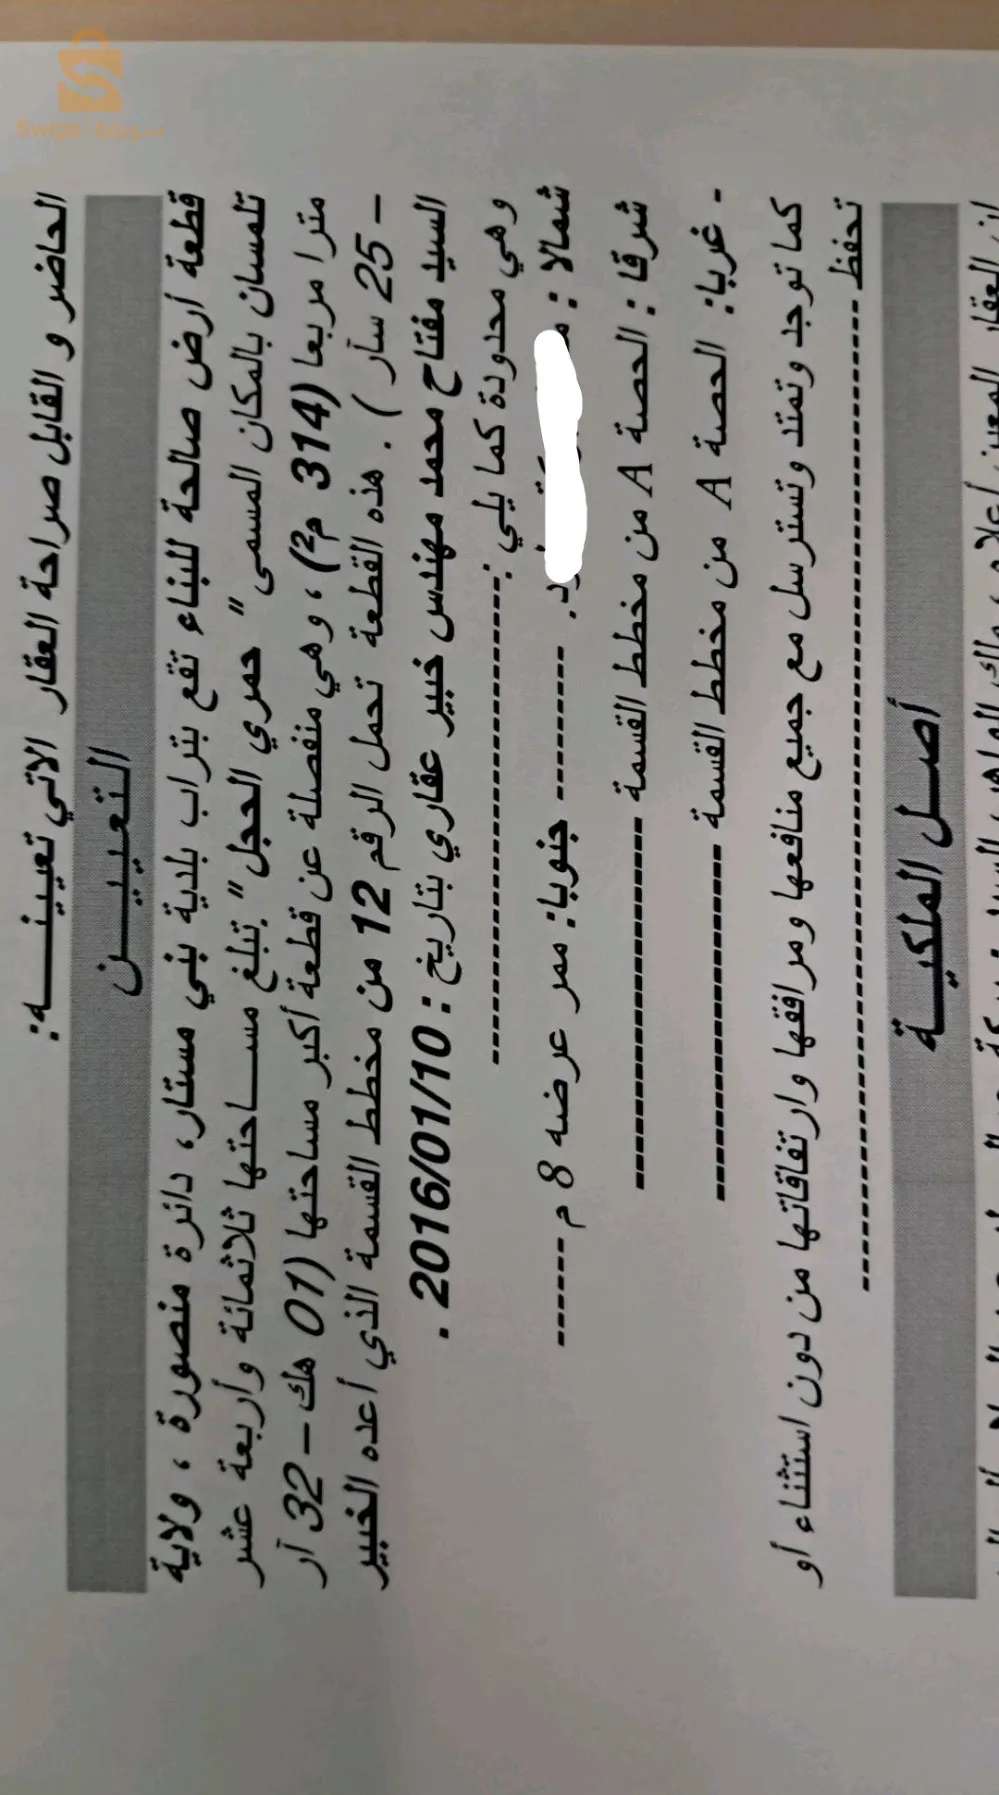 سويقة Swiga
الحاضر و القابل صراحة العقار الاتي تعيينـــــه:
التعييـــن
قطعة أرض صالحة للبناء تقع بتراب بلدية بني مستار، دائرة منصورة ، ولاية
تلمسان بالمكان المسمى " حمري الحجل " تبلغ مســـاحتها ثلاثمائة وأربعة عشر
مترا مربعا (314 م²) ، وهي منفصلة عن قطعة أكبر مساحتها (01 هك – 32 آر
– 25 سآر ) . هذه القطعة تحمل الرقم 12 من مخطط القسمة الذي أعده الخبير
السيد مفتاح محمد مهندس خبير عقاري بتاريخ : 2016/01/10 .
وهي محدودة كما يلي :-----------------------------
شمالا : ---------- جنوبا: ممر عرضه 8 م ------
شرقا : الحصة A من مخطط القسمة -----------------------
- غربا: الحصة A من مخطط القسمة -----------------------
كما توجد وتمتد وتسترسل مع جميع منافعها ومرافقها وارتفاقاتها من دون استثناء أو
تحفظ ------------------------------------------------
أصـــل الملكيـــة
ان العقار المعين أعلاه،